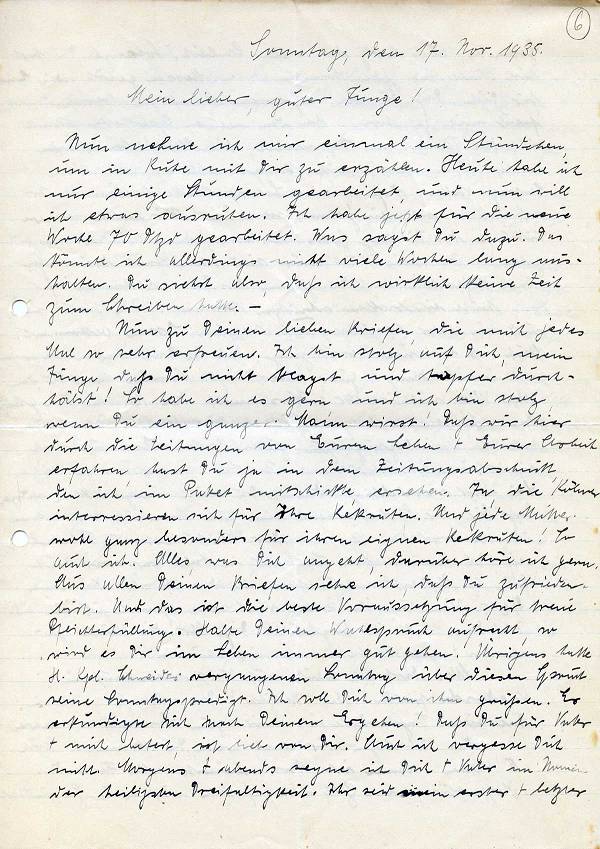 6
Sonntag, den 17. Nov. 1935.
Mein lieber, guter Junge!
Nun nehme ich mir einmal ein Stündchen,
um in Ruhe mit Dir zu erzählen. Heute habe ich
nur einige Stunden gearbeitet und nun will
ich etwas ausruhen. Ich habe jetzt für die neue
Woche 70 Dtzd gearbeitet. Was sagst Du dazu. Das
könnte ich allerdings nicht viele Wochen lang aus-
halten. Du siehst also, daß ich wirklich keine Zeit
zum Schreiben hatte. –
Nun zu Deinen lieben Briefen, die mich jedes
Mal so sehr erfreuen. Ich bin stolz auf Dich, mein
Junge, daß Du nicht klagst und tapfer durch-
hälst! So habe ich es gern und ich bin stolz
wenn Du ein ganzer Mann wirst! Daß wir hier
durch die Zeitungen von Eurem Leben + Eurer Arbeit
erfahren hast Du ja in dem Zeitungsabschnitt,
den ich im Paket mitschickte, ersehen. Ja die Kölner
interressieren sich für Ihre Rekruten. Und jede Mutter
wohl ganz besonders für ihren eignen Rekruten! So
auch ich. Alles was Dich angeht, darüber höre ich gern.
Aus allen Deinen Briefen sehe ich, daß Du zufrieden
bist. Und das ist die beste Voraussetzung für treue
Pflichterfüllung. Halte Deinen Wahlspruch aufrecht, so
wird es Dir im Leben immer gut gehen. Übrigens hatte
H. Kpl. Schneider vergangenen Sonntag über diesen Spruch
seine Sonntagspredigt. Ich soll Dich von ihm grüßen. Er
erkundigte sich nach Deinem Ergehen! Daß Du für Vater
+ mich betest, ist lieb von Dir. Auch ich vergesse Dich
nicht. Morgens + abends segne ich Dich + Vater im Namen
der heiligsten Dreifaltigkeit. Ihr seid mein erster + letzter